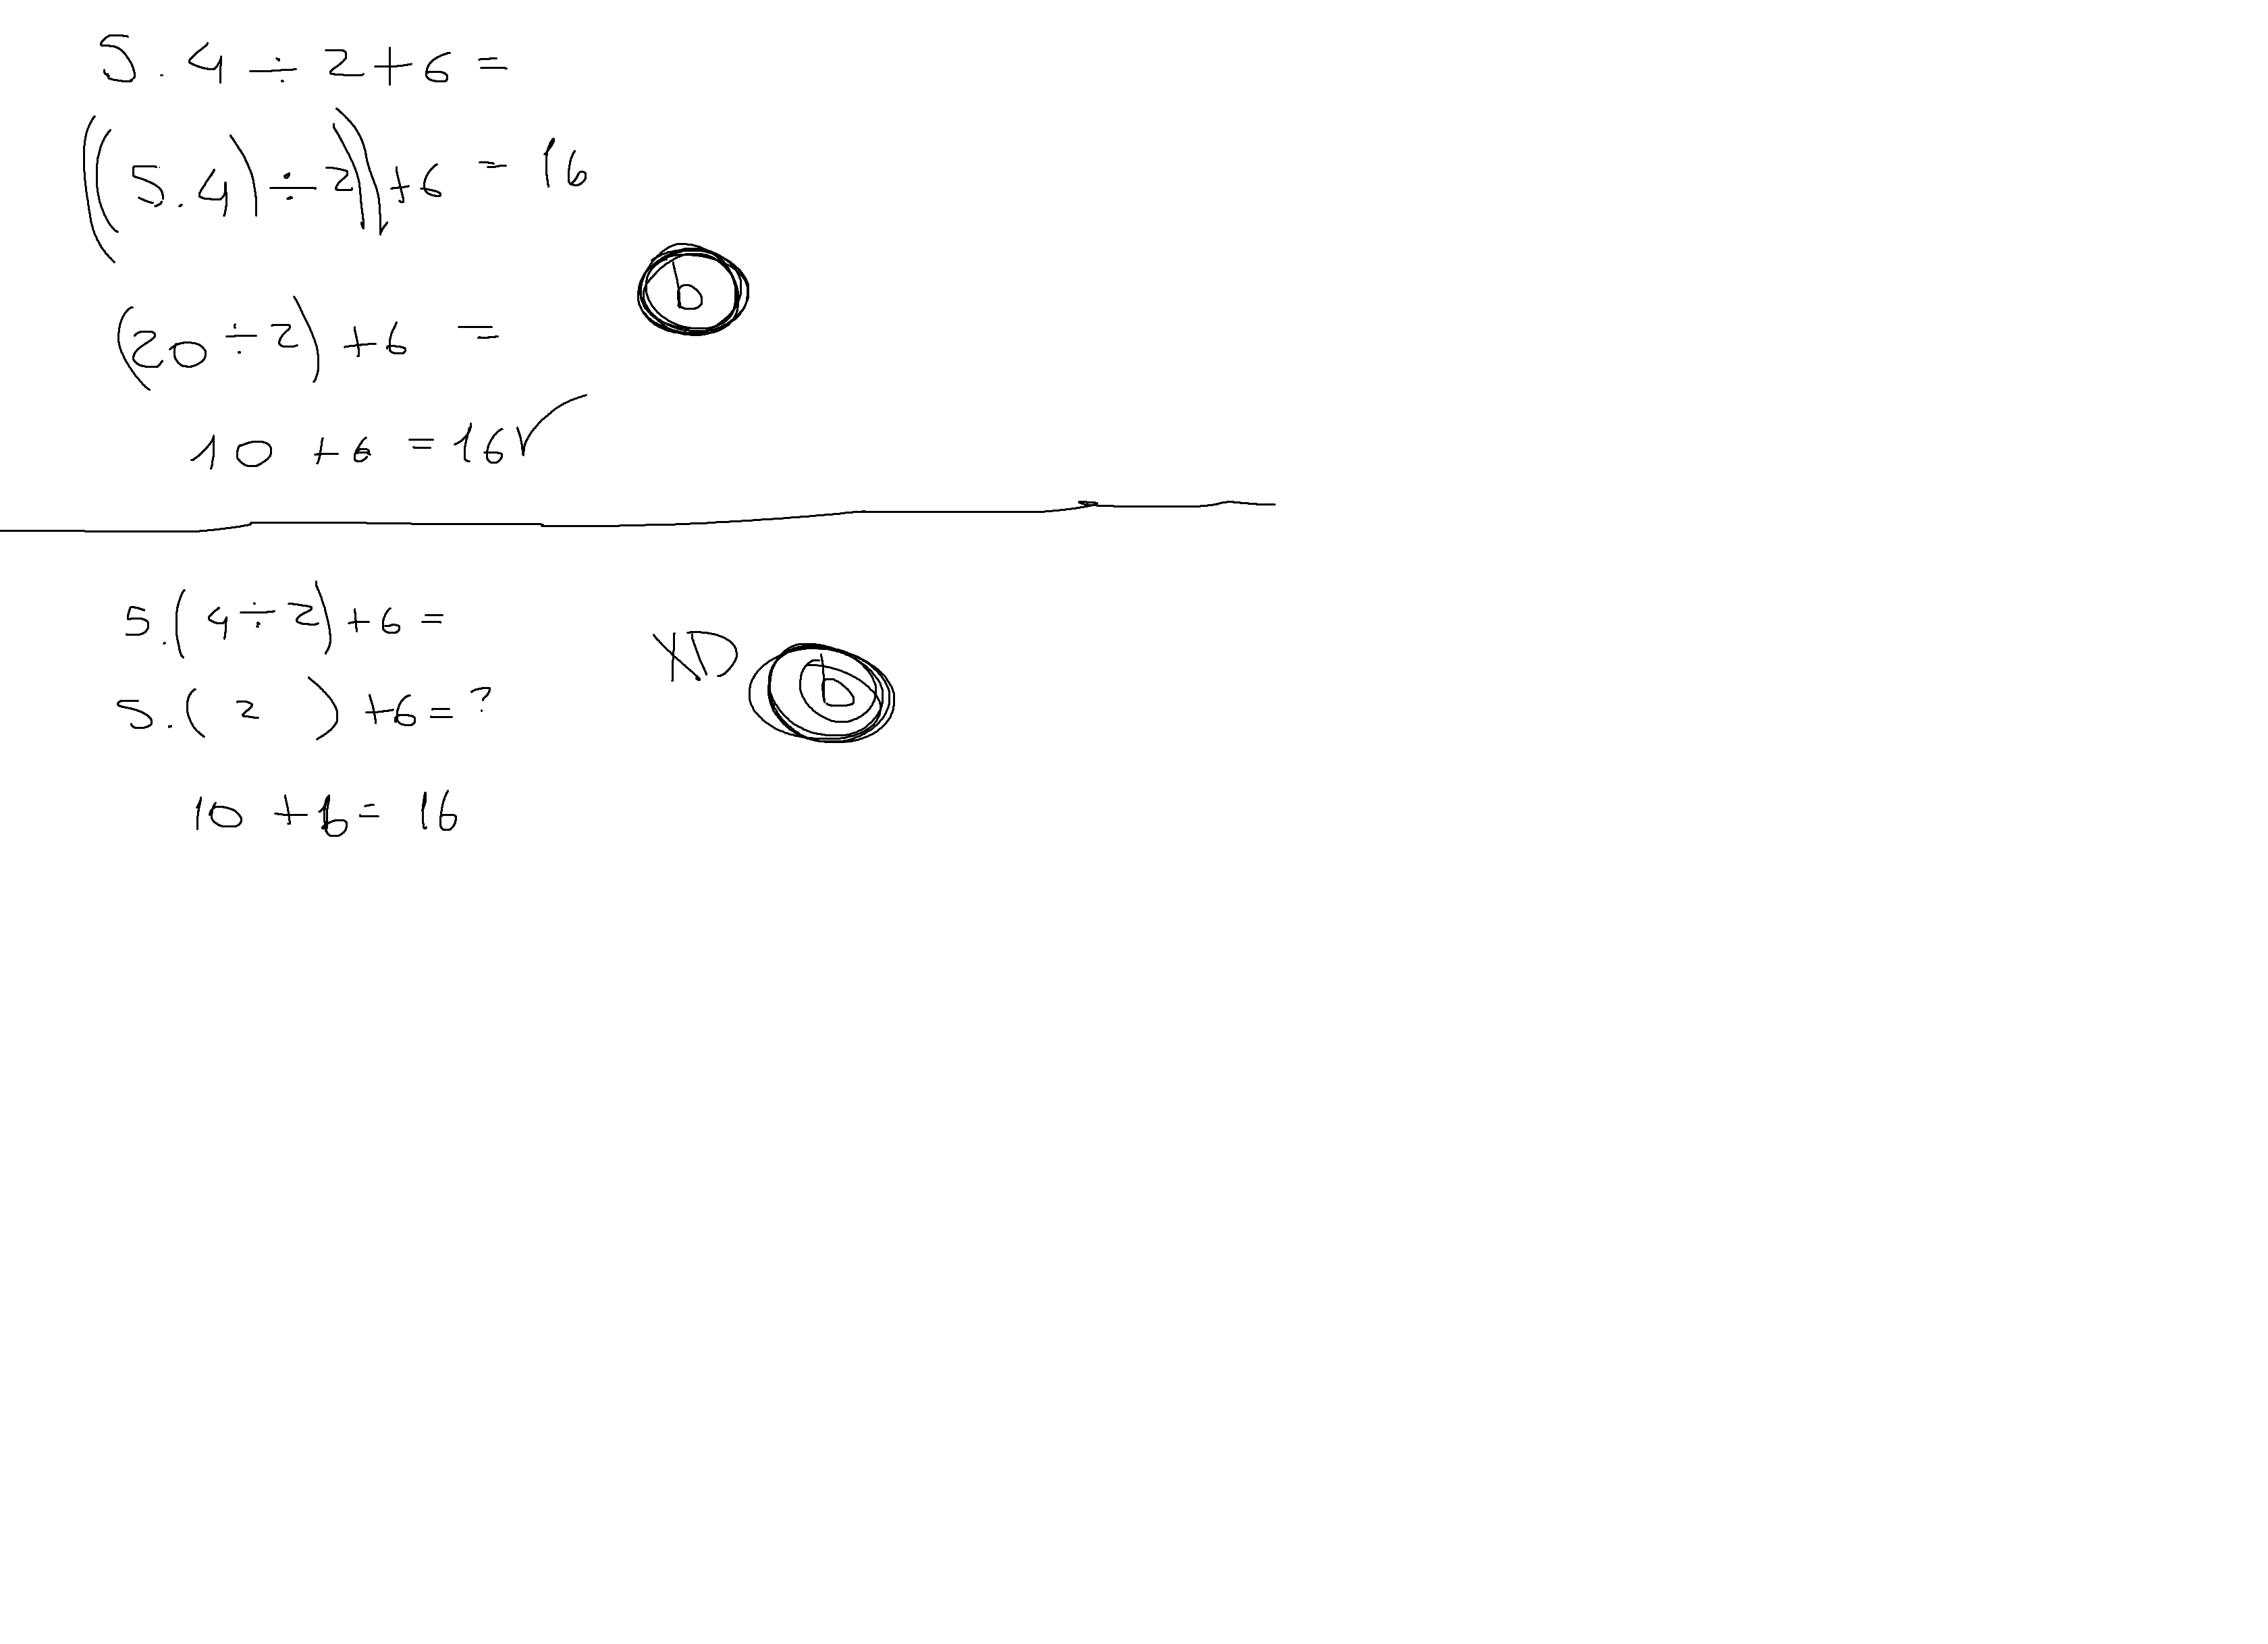 5.4 ÷ 2 + 6 =
((5.4) ÷ 2)) + 6 = 16
b
(20 ÷ 2) + 6 =
10 + 6 = 16 ✓
5.(4 ÷ 2) + 6 =
XD b
5.( 2 ) + 6 = ?
10 + 6 = 16